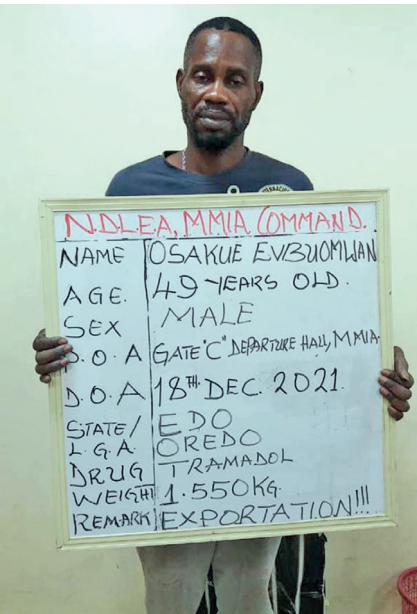 N.D.L.E.A, MMIA COMMAND.
NAME OSAKUE EVBUOMWAN
AGE. 49 YEARS OLD.
SEX MALE
P.O.A GATE "C" DEPARTURE HALL, MMIA.
D.O.A 18TH DEC. 2021.
STATE/ EDO
L.G.A. OREDO
DRUG TRAMADOL
WEIGHT 1.550KG.
REMARK EXPORTATION!!!